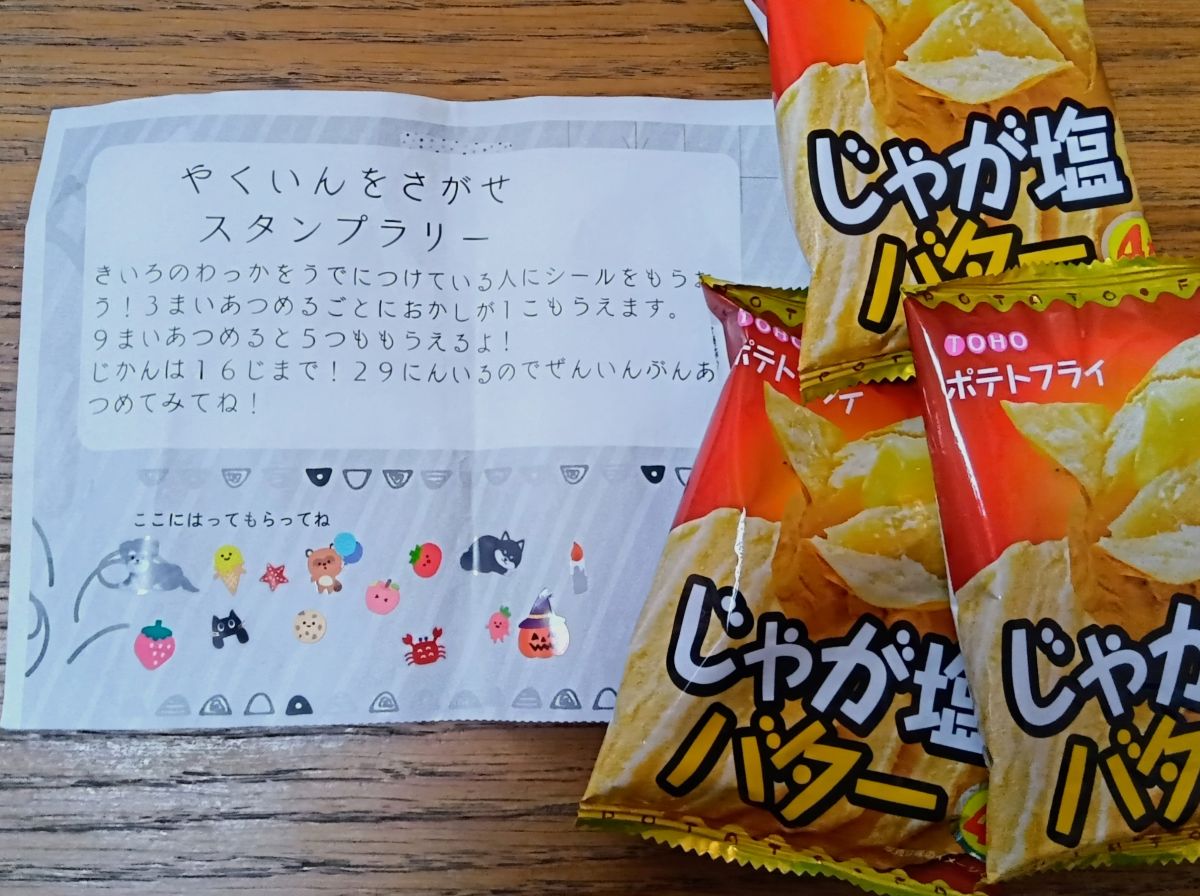 やくいんをさがせ
スタンプラリー
きいろのわっかをうでにつけている人にシールをもらお
う！3まいあつめるごとにおかしが1こもらえます。
9まいあつめると5つももらえるよ！
じかんは16じまで！29にんいるのでぜんいんぶんあ
つめてみてね！
ここにはってもらってね
じゃが塩
バター
4
TOHO
ポテト
じゃが塩
バター
4
POTATO
TOHO
ポテトフライ
じゃが
バタ